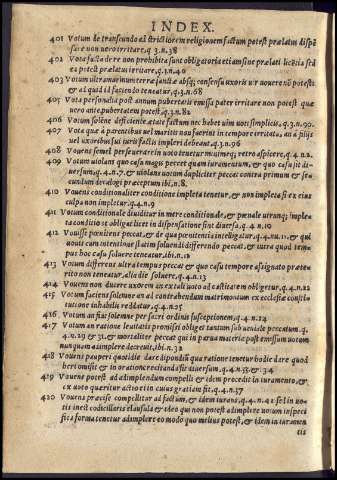 INDEX.
401 Votum de transeundo ad strictiorem religionem factum potest prælatus dispē
sare non vero irritare, q.3.n.38
402 Vota facta de re non prohibita sunt obligatoria etiam sine prælati licētia sed
ea potest prælatus irritare, q.3.n.40
403 Votum ultramarinum terræ sanctæ absq; consensu uxoris vir vovere nō potest
& ad quid id faciendo teneatur, q.3.n.68
405 Vota personalia post annum pubertatis emissa pater irritare non potest quæ
vero ante pubertatem potest, q.3.n.82
406 Votum solēne deficiente ætate factum nec habet vim voti simplicis, q.3.n.90.
407 Vota quæ à parentibus vel maritis non fuerint in tempore irritata, an à filijs
vel uxoribus sui iuris factis impleri debeant q.3.n.96
408 Vovens semel perseverare in voto tenetur nūmquā; retro aspicere, q.4.n.2.
409 Votum violans quo casu magis peccet quam iuramentum, & quo casu sit di
versum, q.4.n.7. & violans votum dupliciter peccat contra primum & se
cundum decalogi præceptum ibi, n.8.
410 Vovens conditionaliter conditione impleta tenetur, & non impleta si ex eius
culpa non impletur, q.4.n.9
411 Votum conditionale dividitur in mere conditionale, & pœnale utrunq; imple
ta conditione obligat licet in dispensatione sint diversa, q.4.n.19
412 Vovisse pœnitens peccat & de qua pœnitentia intelligatur, q.4.nu.11. & qui
vovit cum intentione statim solvendi differendo peccat, & intra quod tem
pus hoc casu solvere teneatur, ibi.n.12
413 Votum differens ultra tempus peccat & quo casu tempore assignato præte
rito non teneatur, alio die solvere, n.13
414 Vovens non ducere uxorem an extali voto ad castitatem obligetur, q.4.n.22
415 Votum faciens solemne an ad contrahendum matrimonium ex ecclesiæ constitu
tione inhabilis reddatur, q.4.n.25
416 Votum an fiat solemne per sacri ordinis susceptionem, q.4.n.24
417 Votum an ratione levitatis promissi obliget tantum sub veniale peccatum, q.
4.n.29 & 31. & mortaliter peccat qui in parva materie post emissum votum
nunquam adimplere decrevit, ibi.n.32
418 Vovens pauperi quotidie dare dipondiū qua ratione tenetur hodie dare quod
heri omisit & in oratione recitanda sit diversum, q.4.n.33. & 34
419 Vovens potest ad adimplendum compelli & idem procedit in iuramento, &
ex voto quæritur actio et in cuius gratiam fit. q.4.n.37
420 Vovens præcise compellitur ad factum, & idem iurans, q.4.n.42 sed in vo
tis inest codicillaris clausula & ideo qui non potest adimplere votum in speci
fica forma tenetur adimplere eo modo quo melius potest, & idem in iuramen
tis